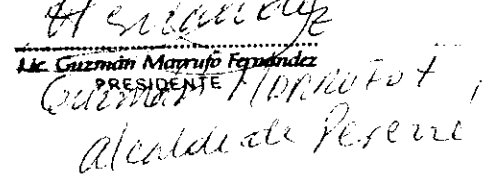 Lic. Guzmán Marrufo Fernández
PRESIDENTE
Guzmán Marrufo F,
alcalde de